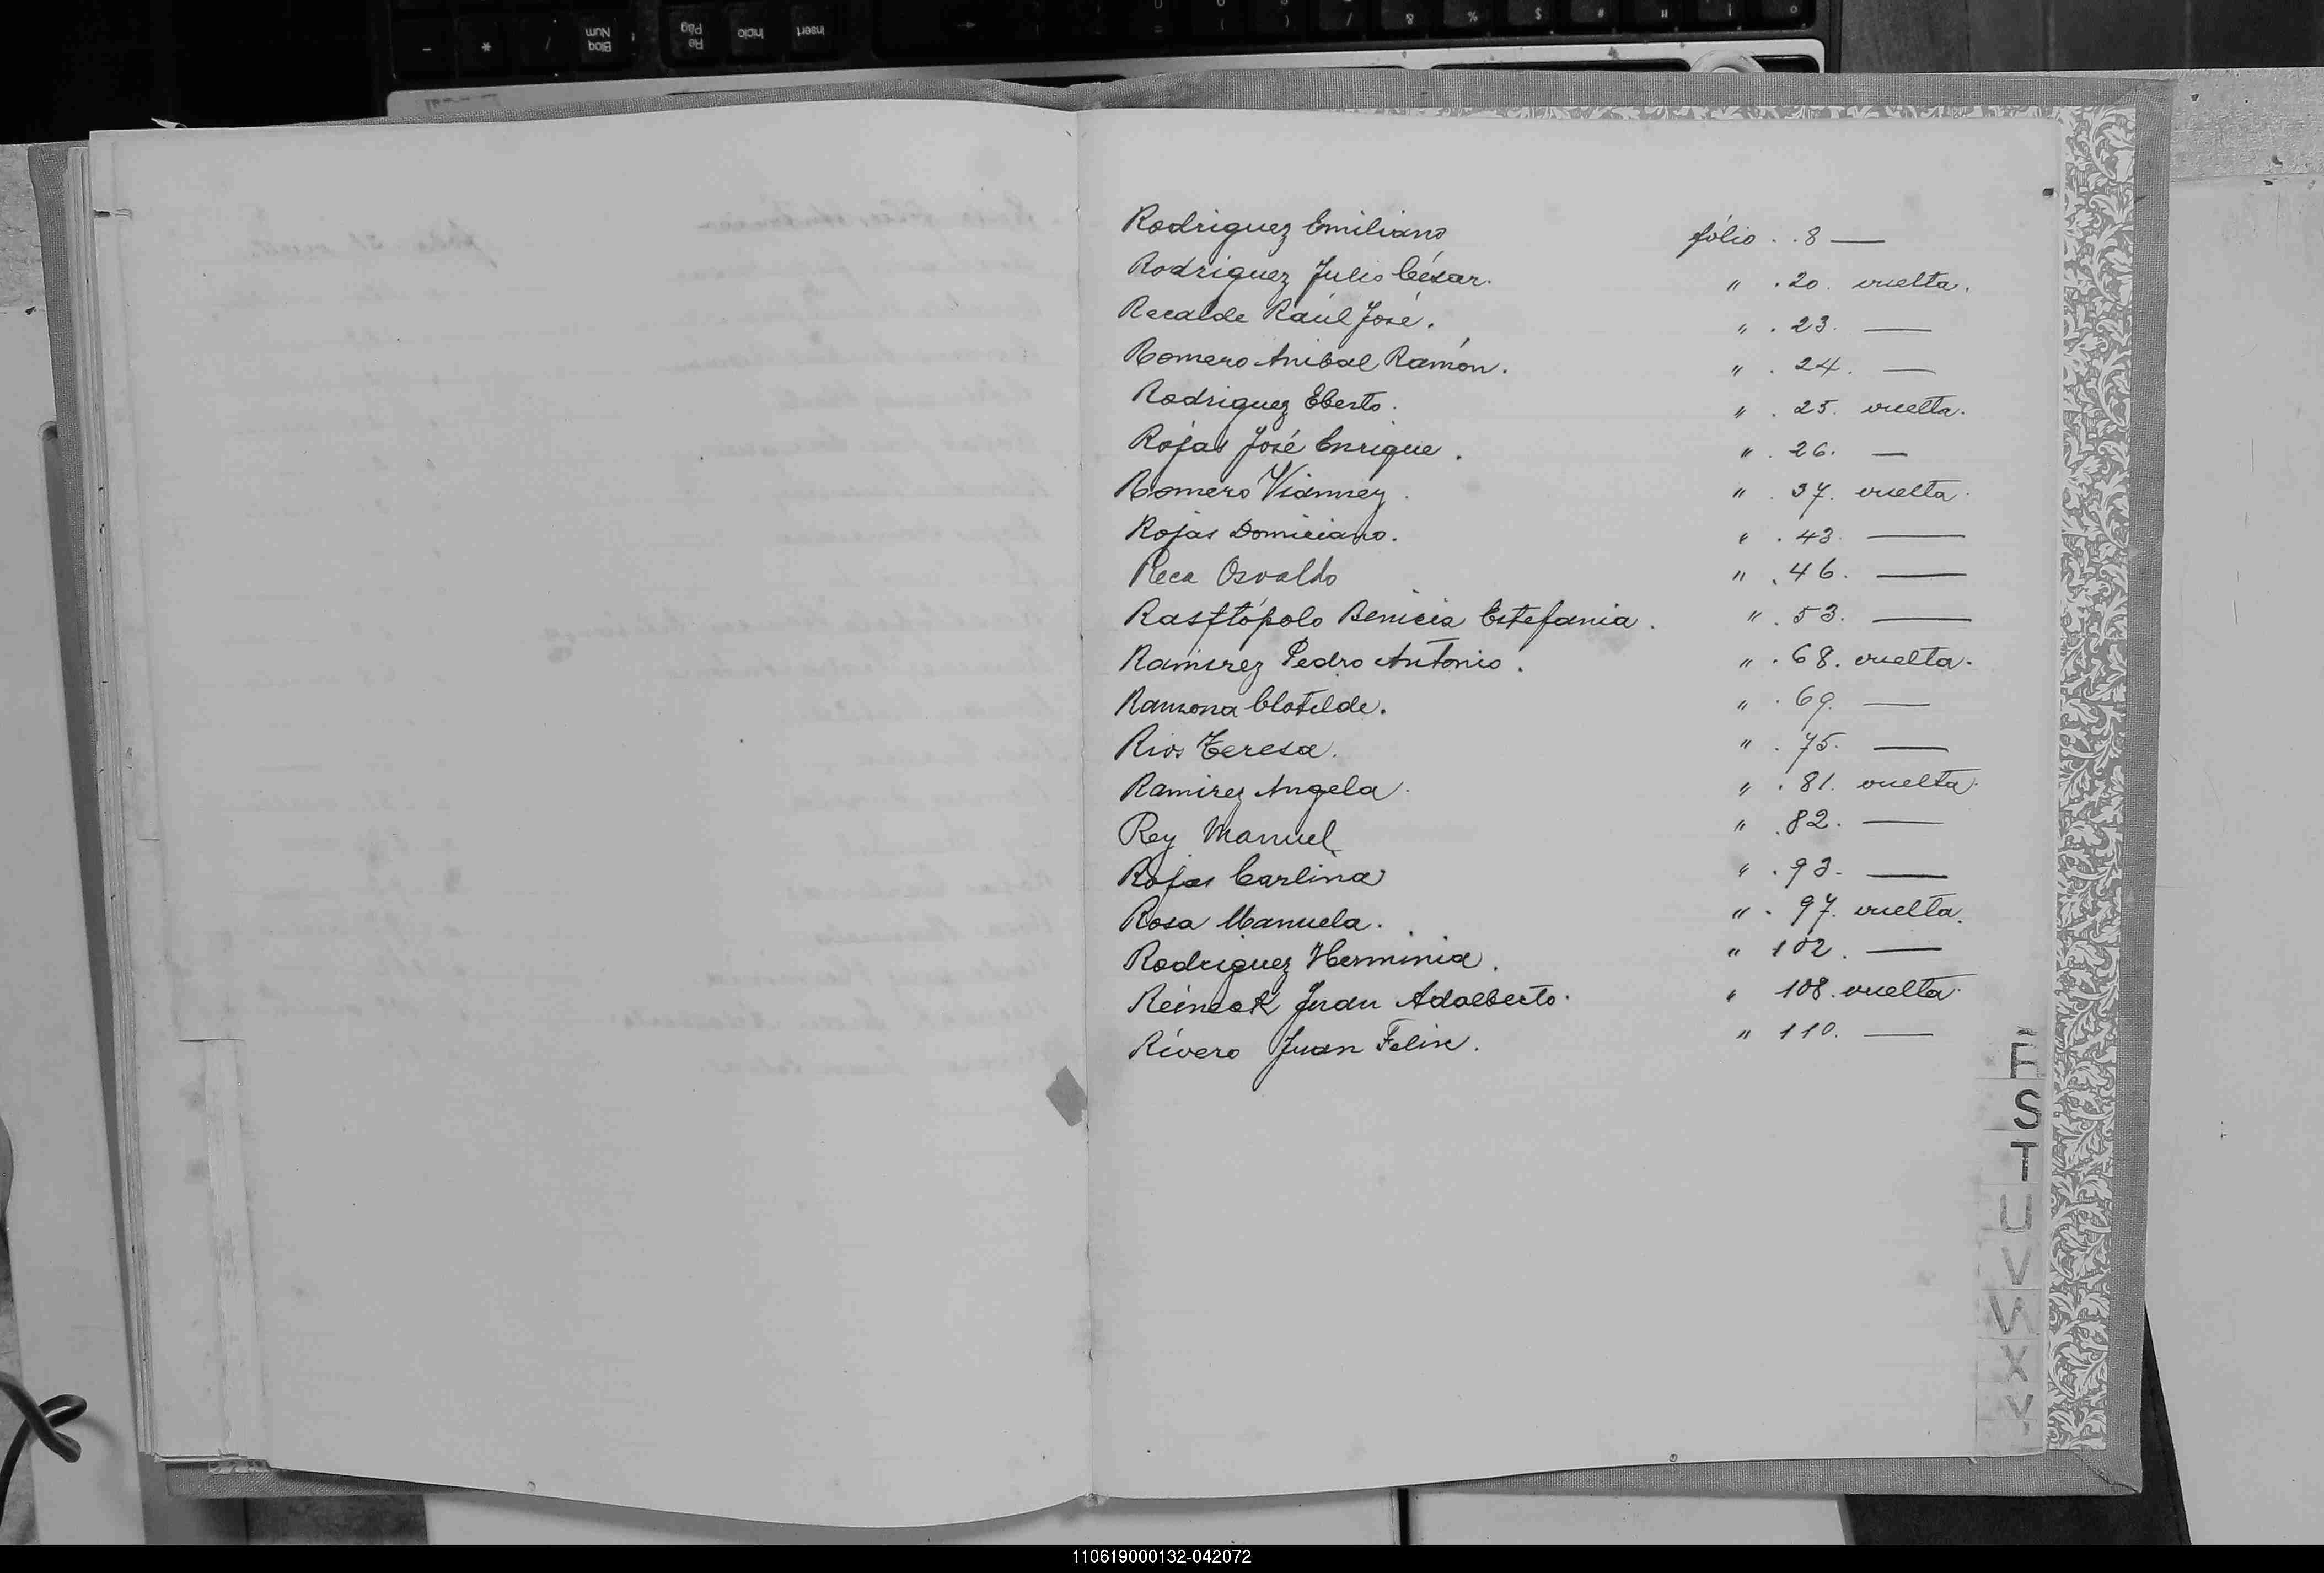 Rodriguez Emiliano fólio . . 8 —
Rodriguez Julio César. " . 20. vuelta.
Recalde Raúl José. " . 23. —
Romero Anibal Ramón. " . 24. —
Rodriguez Eberto. " . 25. vuelta.
Rojas José Enrique. " . 26. —
Romero Vianney. " . 37. vuelta.
Rojas Domiciano. " . 43. —
Reca Osvaldo " . 46. —
Rasftópolo Benicia Estefania. " . 53. —
Ramirez Pedro Antonio. " . 68. vuelta.
Ramona Clotilde. " . 69. —
Rios Teresa. " . 75. —
Ramirez Angela. " . 81. vuelta.
Rey Manuel " . 82. —
Rojas Carlina " . 93. —
Rosa Manuela. " . 97. vuelta.
Rodriguez Herminia. " 102. —
Reineck Juan Adalberto. " 108. vuelta.
Rivero Juan Felix. " 110. —
R
S
T
U
V
W
X
Y
110619000132-042072